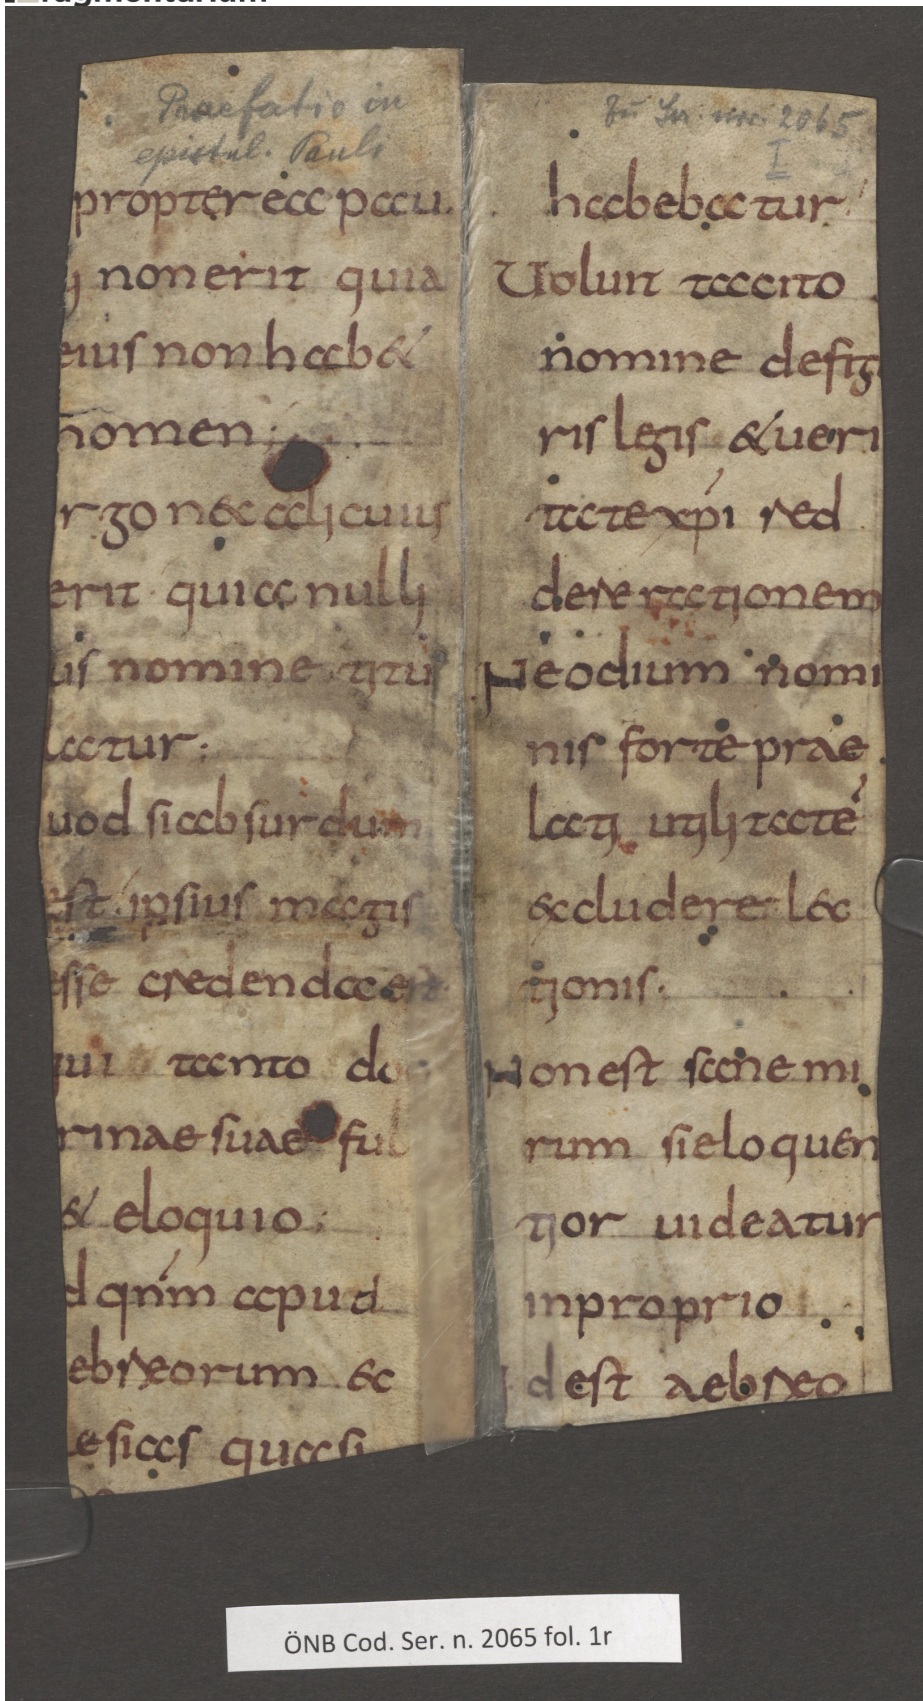 Fragmentarium
Praefatio in
epistul. Pauli
propterea pau
li non erit quia
eius non hab&
nomen·
rgo nec alicuius
erit quia nulli
us nomine titu
latur·
uod si absurdum
est ipsius magis
esse credenda est
qui tanto doc
rinae suae ful
& eloquio·
d qnm apud
ebreorum ec
esias quasi
Ser. nov. 2065
I
habebatur
Uolun tanto
nomine defigu
ris legis & ueri
tate xpi sed
desertationem
Ne odium nomi
nis forte prae
lati utilitate
excludere lec
tionis·
Non est sane mi
rum si eloquen
tior uideatur
in proprio
id est aebreo
ÖNB Cod. Ser. n. 2065 fol. 1r